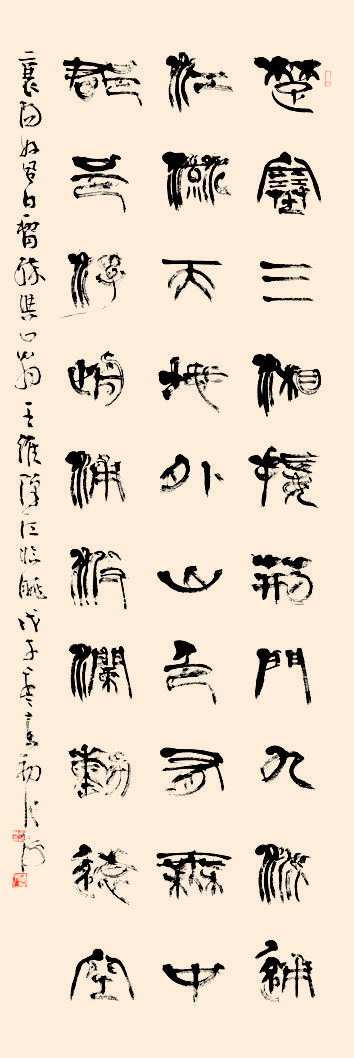 楚塞三湘接荊門九派通
江流天地外山色有無中
郡邑浮前浦波瀾動遠空
襄陽好風日留醉與山翁 王維漢江臨眺 戊子